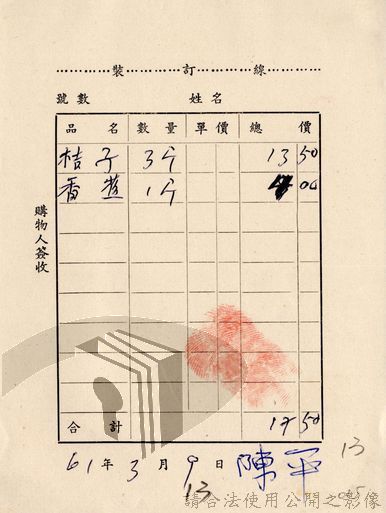 裝訂線
號數 姓名
品名 數量 單價 總價
桔子 3斤 13 50
香蕉 1斤 4 00
合計 17 50
購物人簽收
61年3月9日 陳平
13
13
請合法使用公開之影像